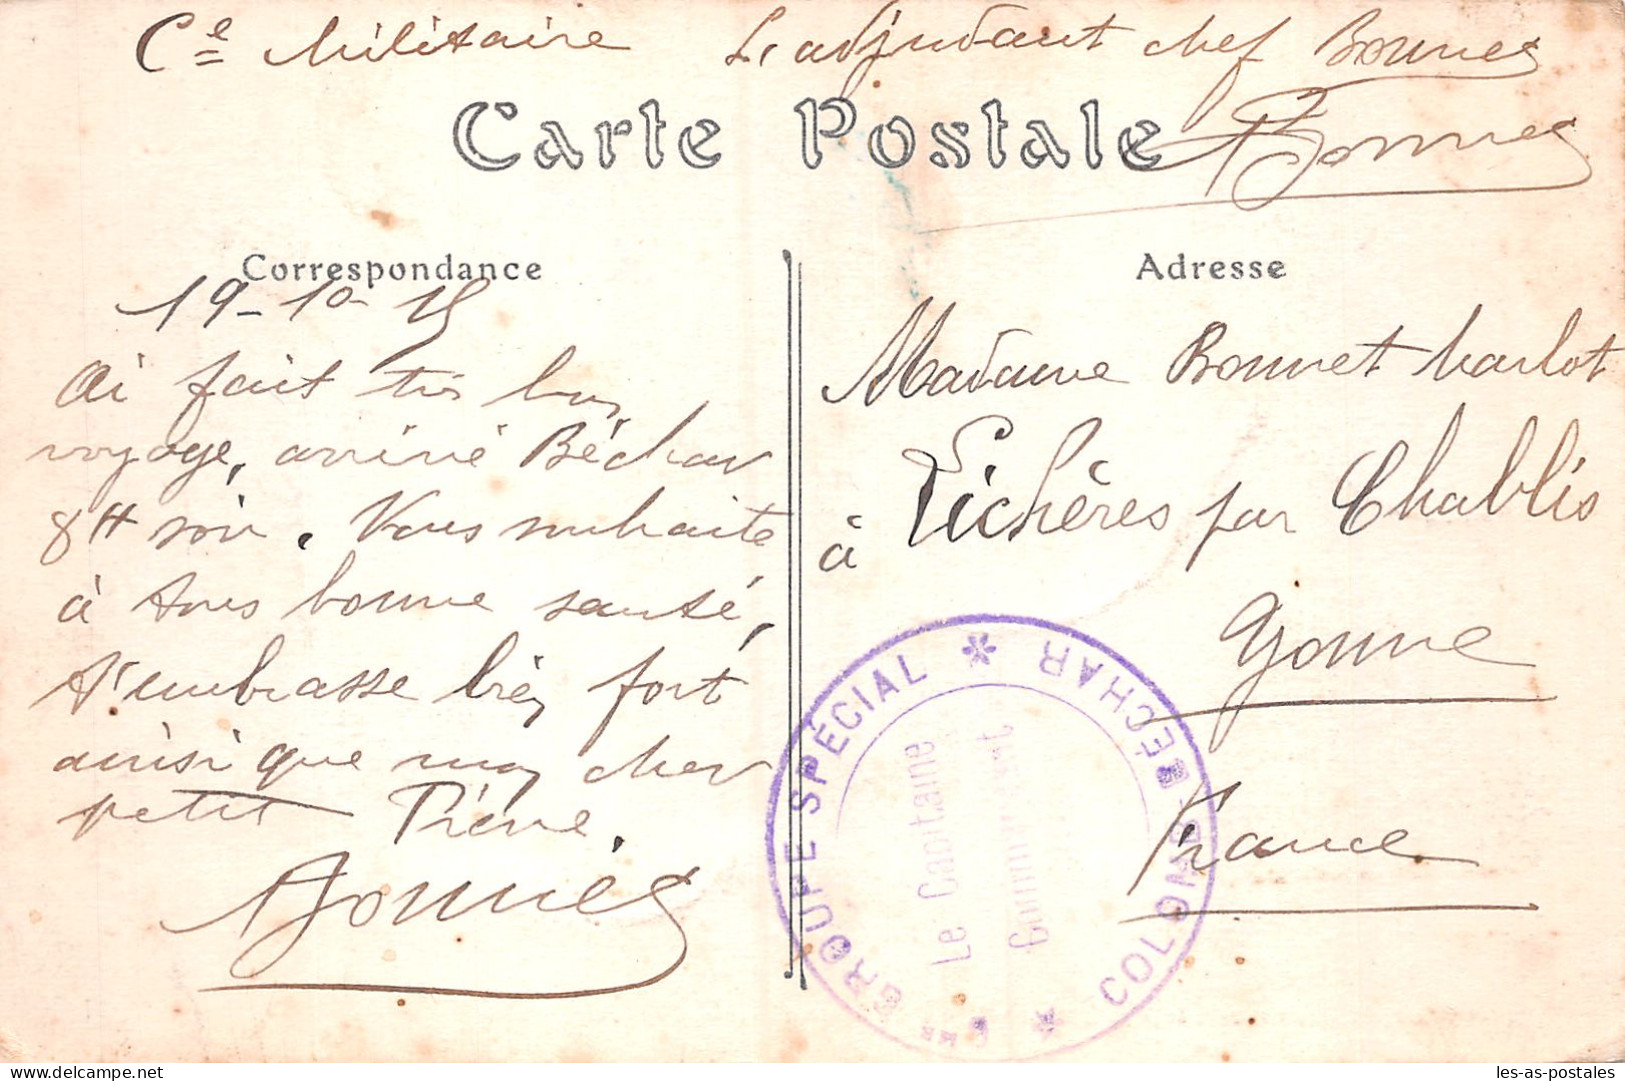 Cᵉ Militaire L'adjudant chef Bonnes
Carte Postale
Bonnes
Correspondance
19-10-15
Ai fait très bon
voyage, arrivé Béchar
8H soir. Vous souhaite
à tous bonne santé,
t'embrasse bien fort
ainsi que mon cher
petit Pierre.
Bonnes
Adresse
Madame Bonnet
à Lichères par Chablis
Yonne
France
GROUPE SPÉCIAL * COLOMB-BÉCHAR *
Le Capitaine
Commandant
les-as-postales